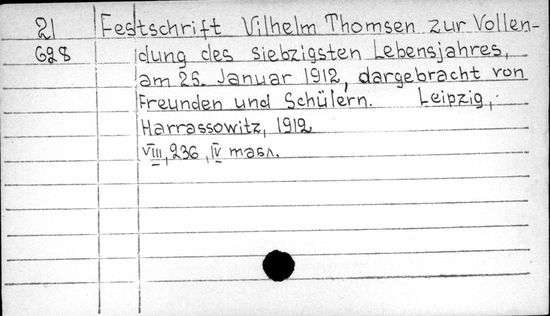 21 Festschrift Vilhelm Thomsen zur Vollen-
628 dung des siebzigsten Lebensjahres,
am 25. Januar 1912, dargebracht von
Freunden und Schülern. Leipzig,
Harrassowitz, 1912
VIII, 236, IV